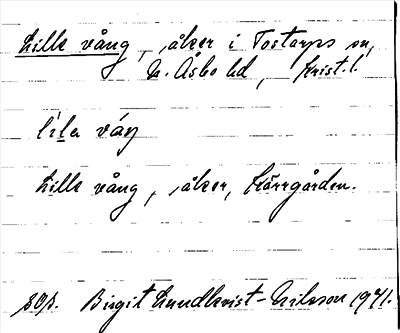 Lille vång, åker i Tostarps sn,
N. Åsbo hd, Krist. l.
lila váŋ
Lille vång, åker, Körrgården.
sop. Birgit Lundkvist-Nilsson 1971.